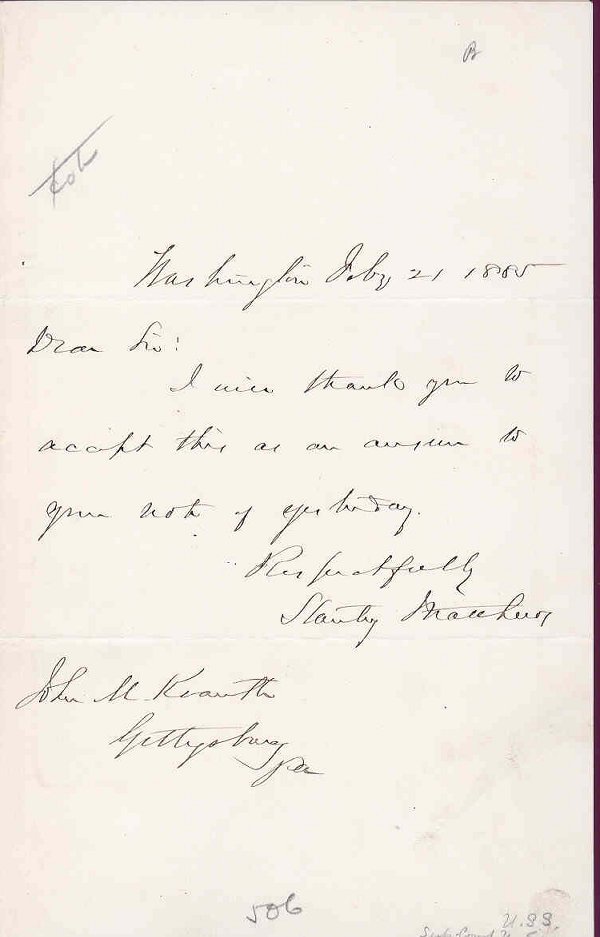 B
Washington Feby 21 1885
Dear Sir:
I will thank you to
accept this as an answer to
your note of yesterday.
Respectfully
Stanley Matthews
John M Krauth
Gettysburg
Pa
506
U.S.S.